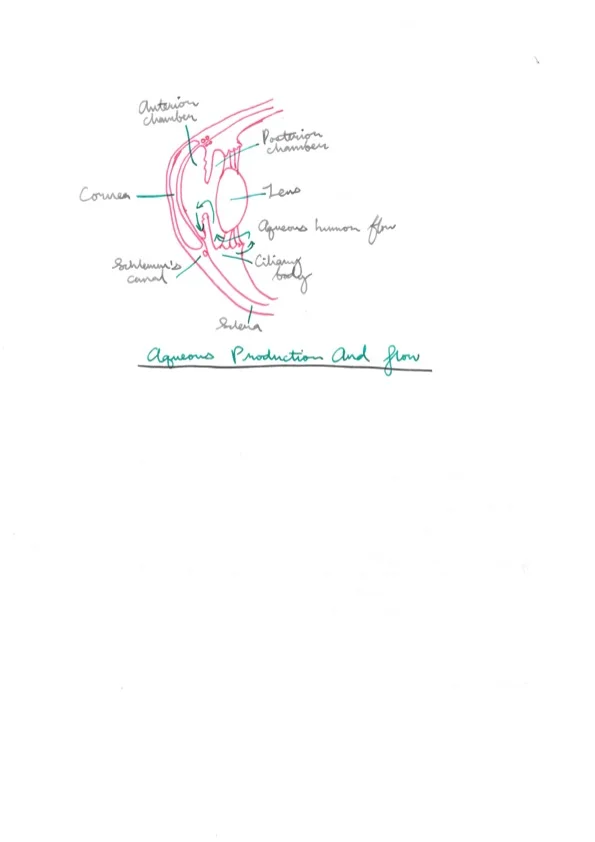 Anterior
chamber
Posterior
chamber
Cornea
Lens
Aqueous humor flow
Schlemm's
canal
Ciliary
body
Sclera
Aqueous Production And flow